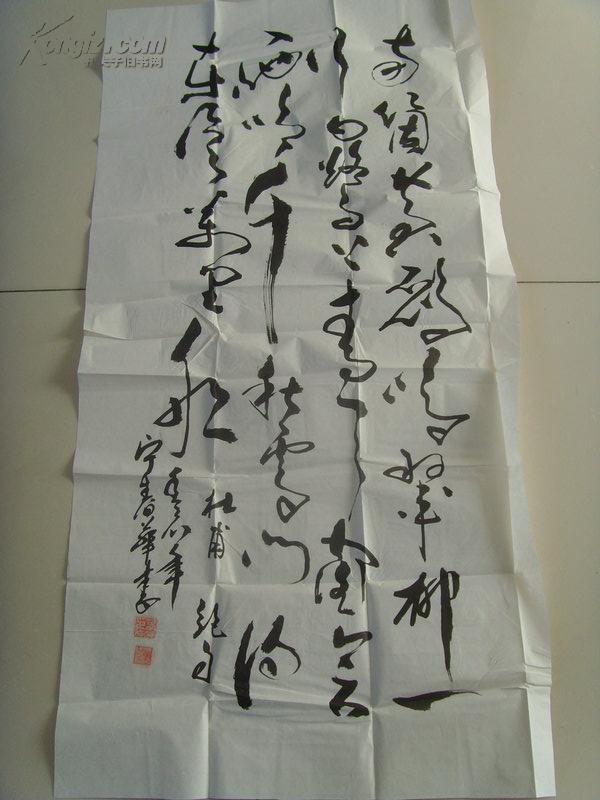 Kongfz.com
孔夫子旧书网
两箇黄鹂鸣翠柳一
行白鹭上青天窗含
西岭千秋雪门泊
东吴万里船
杜甫 绝句
年
宁春華书